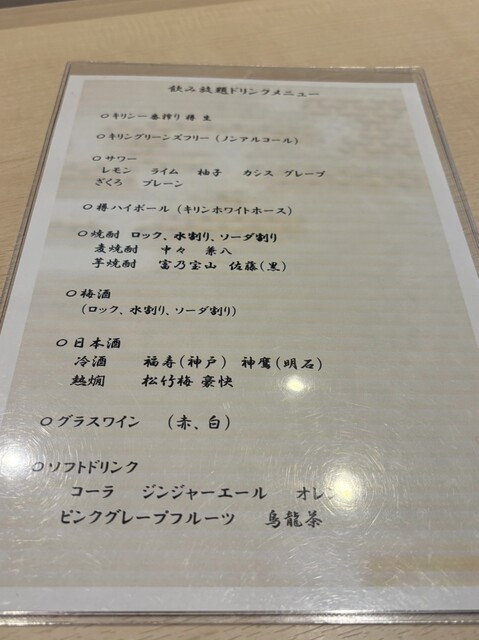 飲み放題ドリンクメニュー
○キリン一番搾り 樽 生
○キリングリーンズフリー (ノンアルコール)
○サワー
レモン ライム 柚子 カシス グレープ
ざくろ プレーン
○樽ハイボール (キリンホワイトホース)
○焼酎 ロック、水割り、ソーダ割り
麦焼酎 中々 兼八
芋焼酎 富乃宝山 佐藤(黒)
○梅酒
(ロック、水割り、ソーダ割り)
○日本酒
冷酒 福寿(神戸) 神鷹(明石)
熱燗 松竹梅 豪快
○グラスワイン (赤、白)
○ソフトドリンク
コーラ ジンジャーエール オレン
ピンクグレープフルーツ 烏龍茶